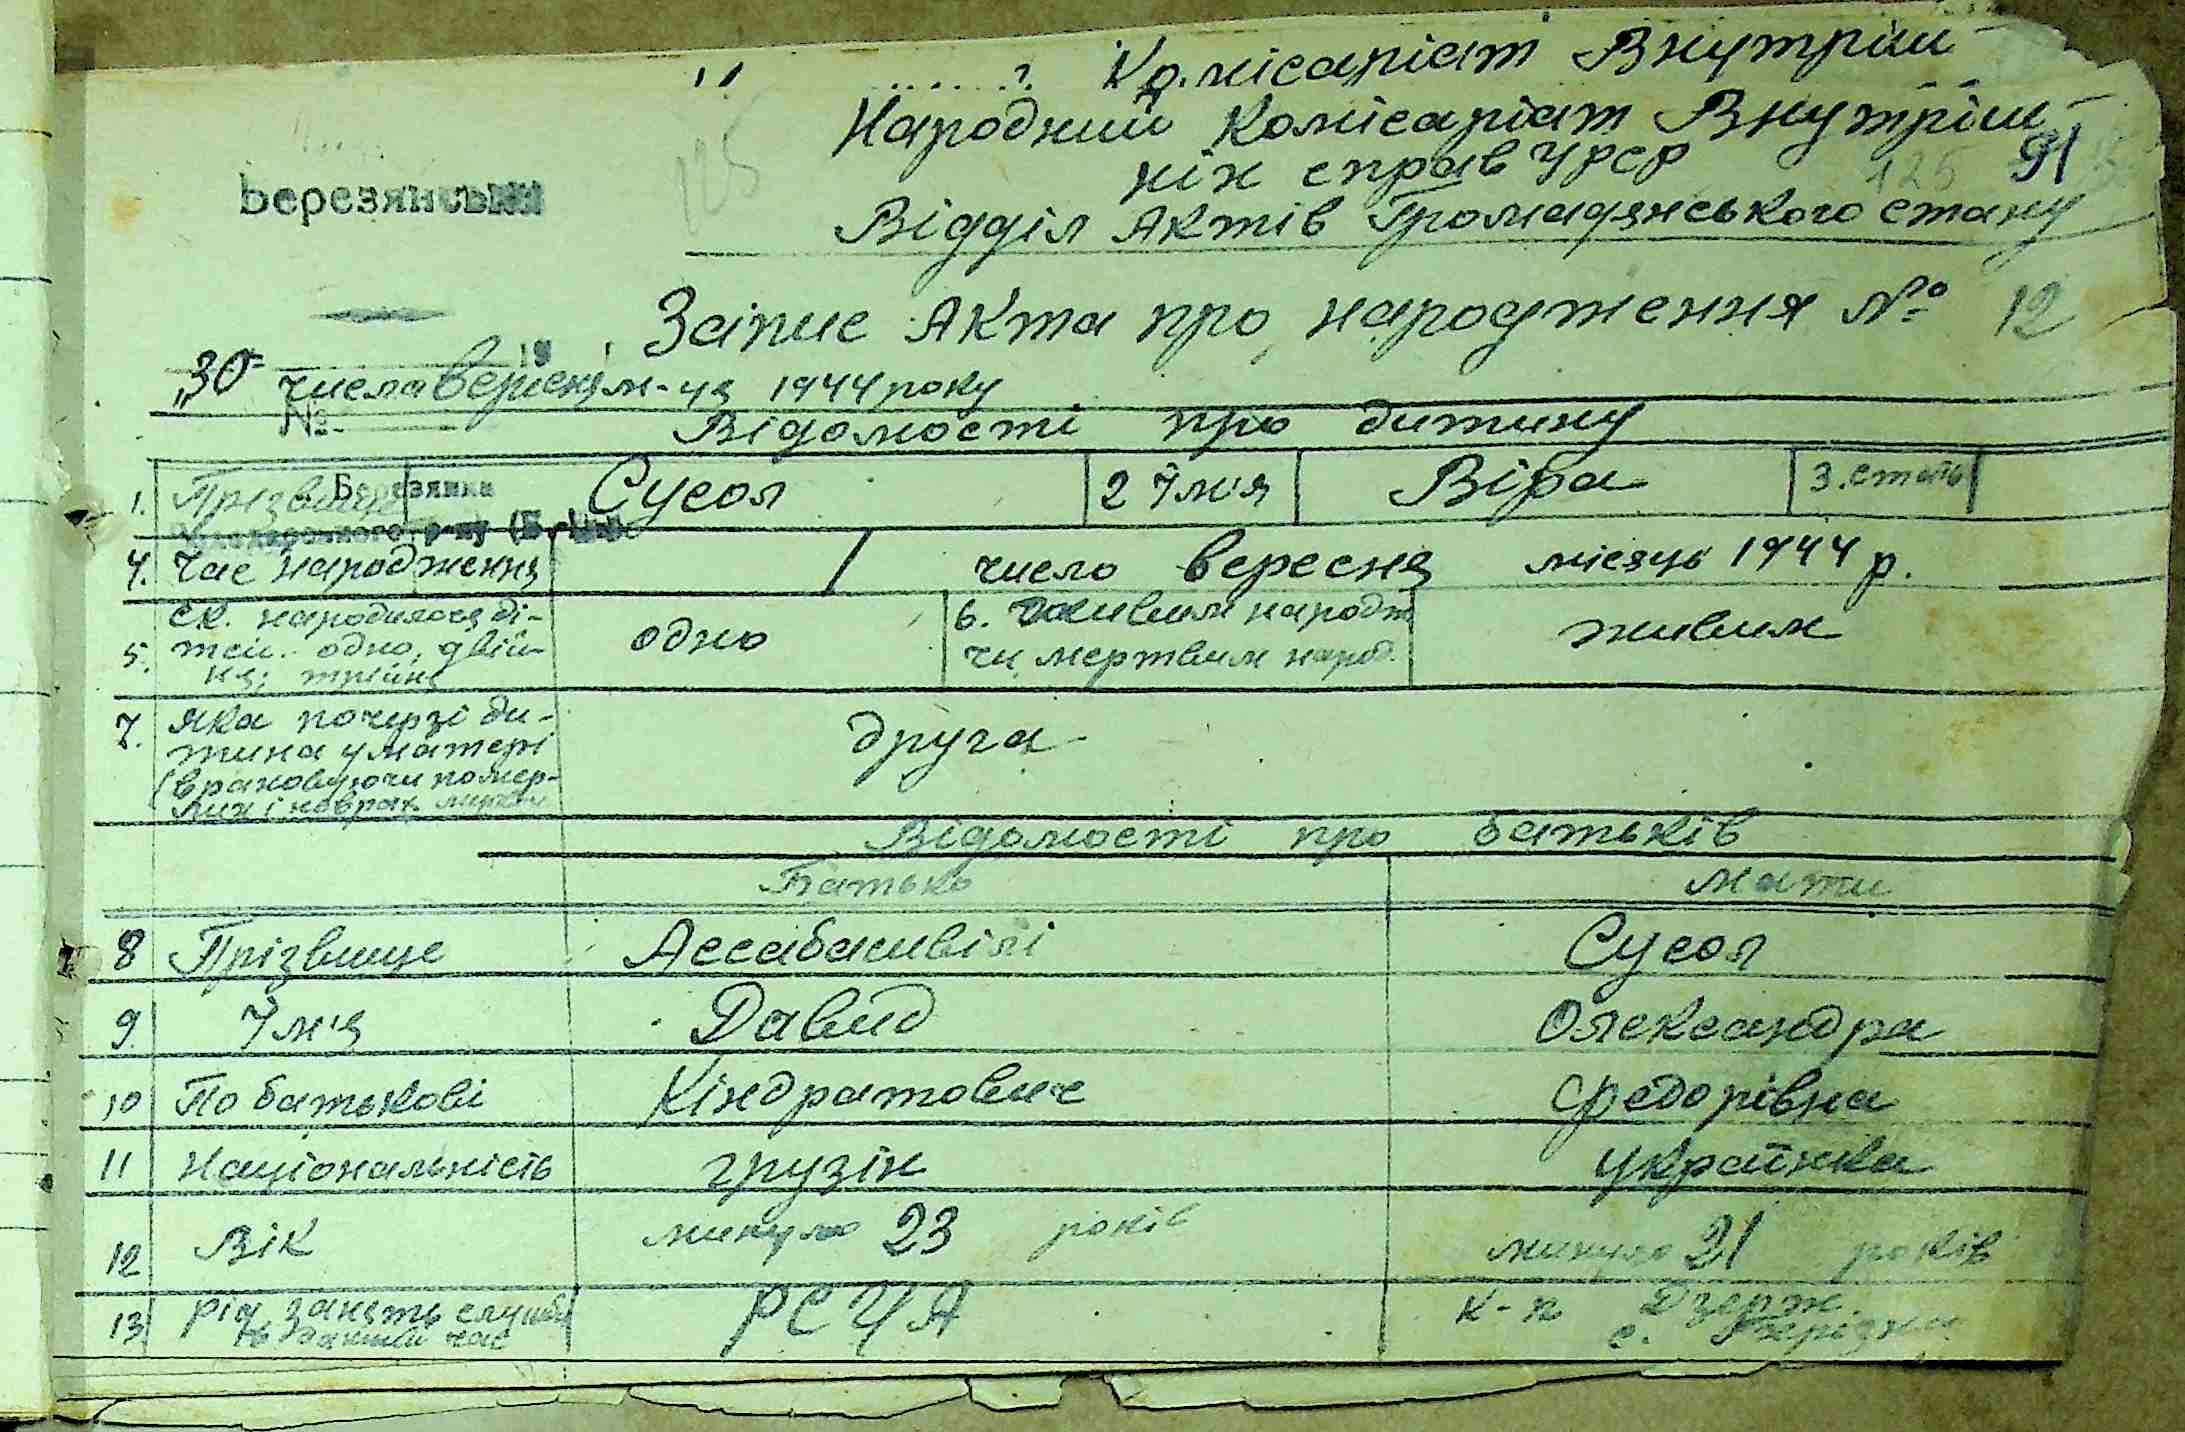 Комісаріат Внутріш-
Народний Комісаріат Внутріш-
ніх справ УРСР 125 91
Березянський
Відділ Актів Громадянського стану
Запис Акта про народження № 12
"30" числа вересня м-ця 1944 року
19
№
Відомості про дитину
1. Прізвище Сусол 2 Ім'я Віра 3. стать
Березянка
4. Час народження 1 число вересня місяць 1944 р.
5. ск. народилося ді-
тей. одно, двій-
ня, трійня
одно
6. Живим народж
чи мертвим народ.
живим
7. яка по черзі ди-
тина у матері
(враховуючи помер-
лих і
друга
Відомості про батьків
Батько Мати
8 Прізвище Ассабашвілі Сусол
9. Ім'я Давид Олександра
10 По батькові Кіндратович Федорівна
11 Національність грузін українка
12 Вік минуло 23 років минуло 21 років
13 Рід занять служби
в даний час
РСЧА
к-п Дзерж.
с.